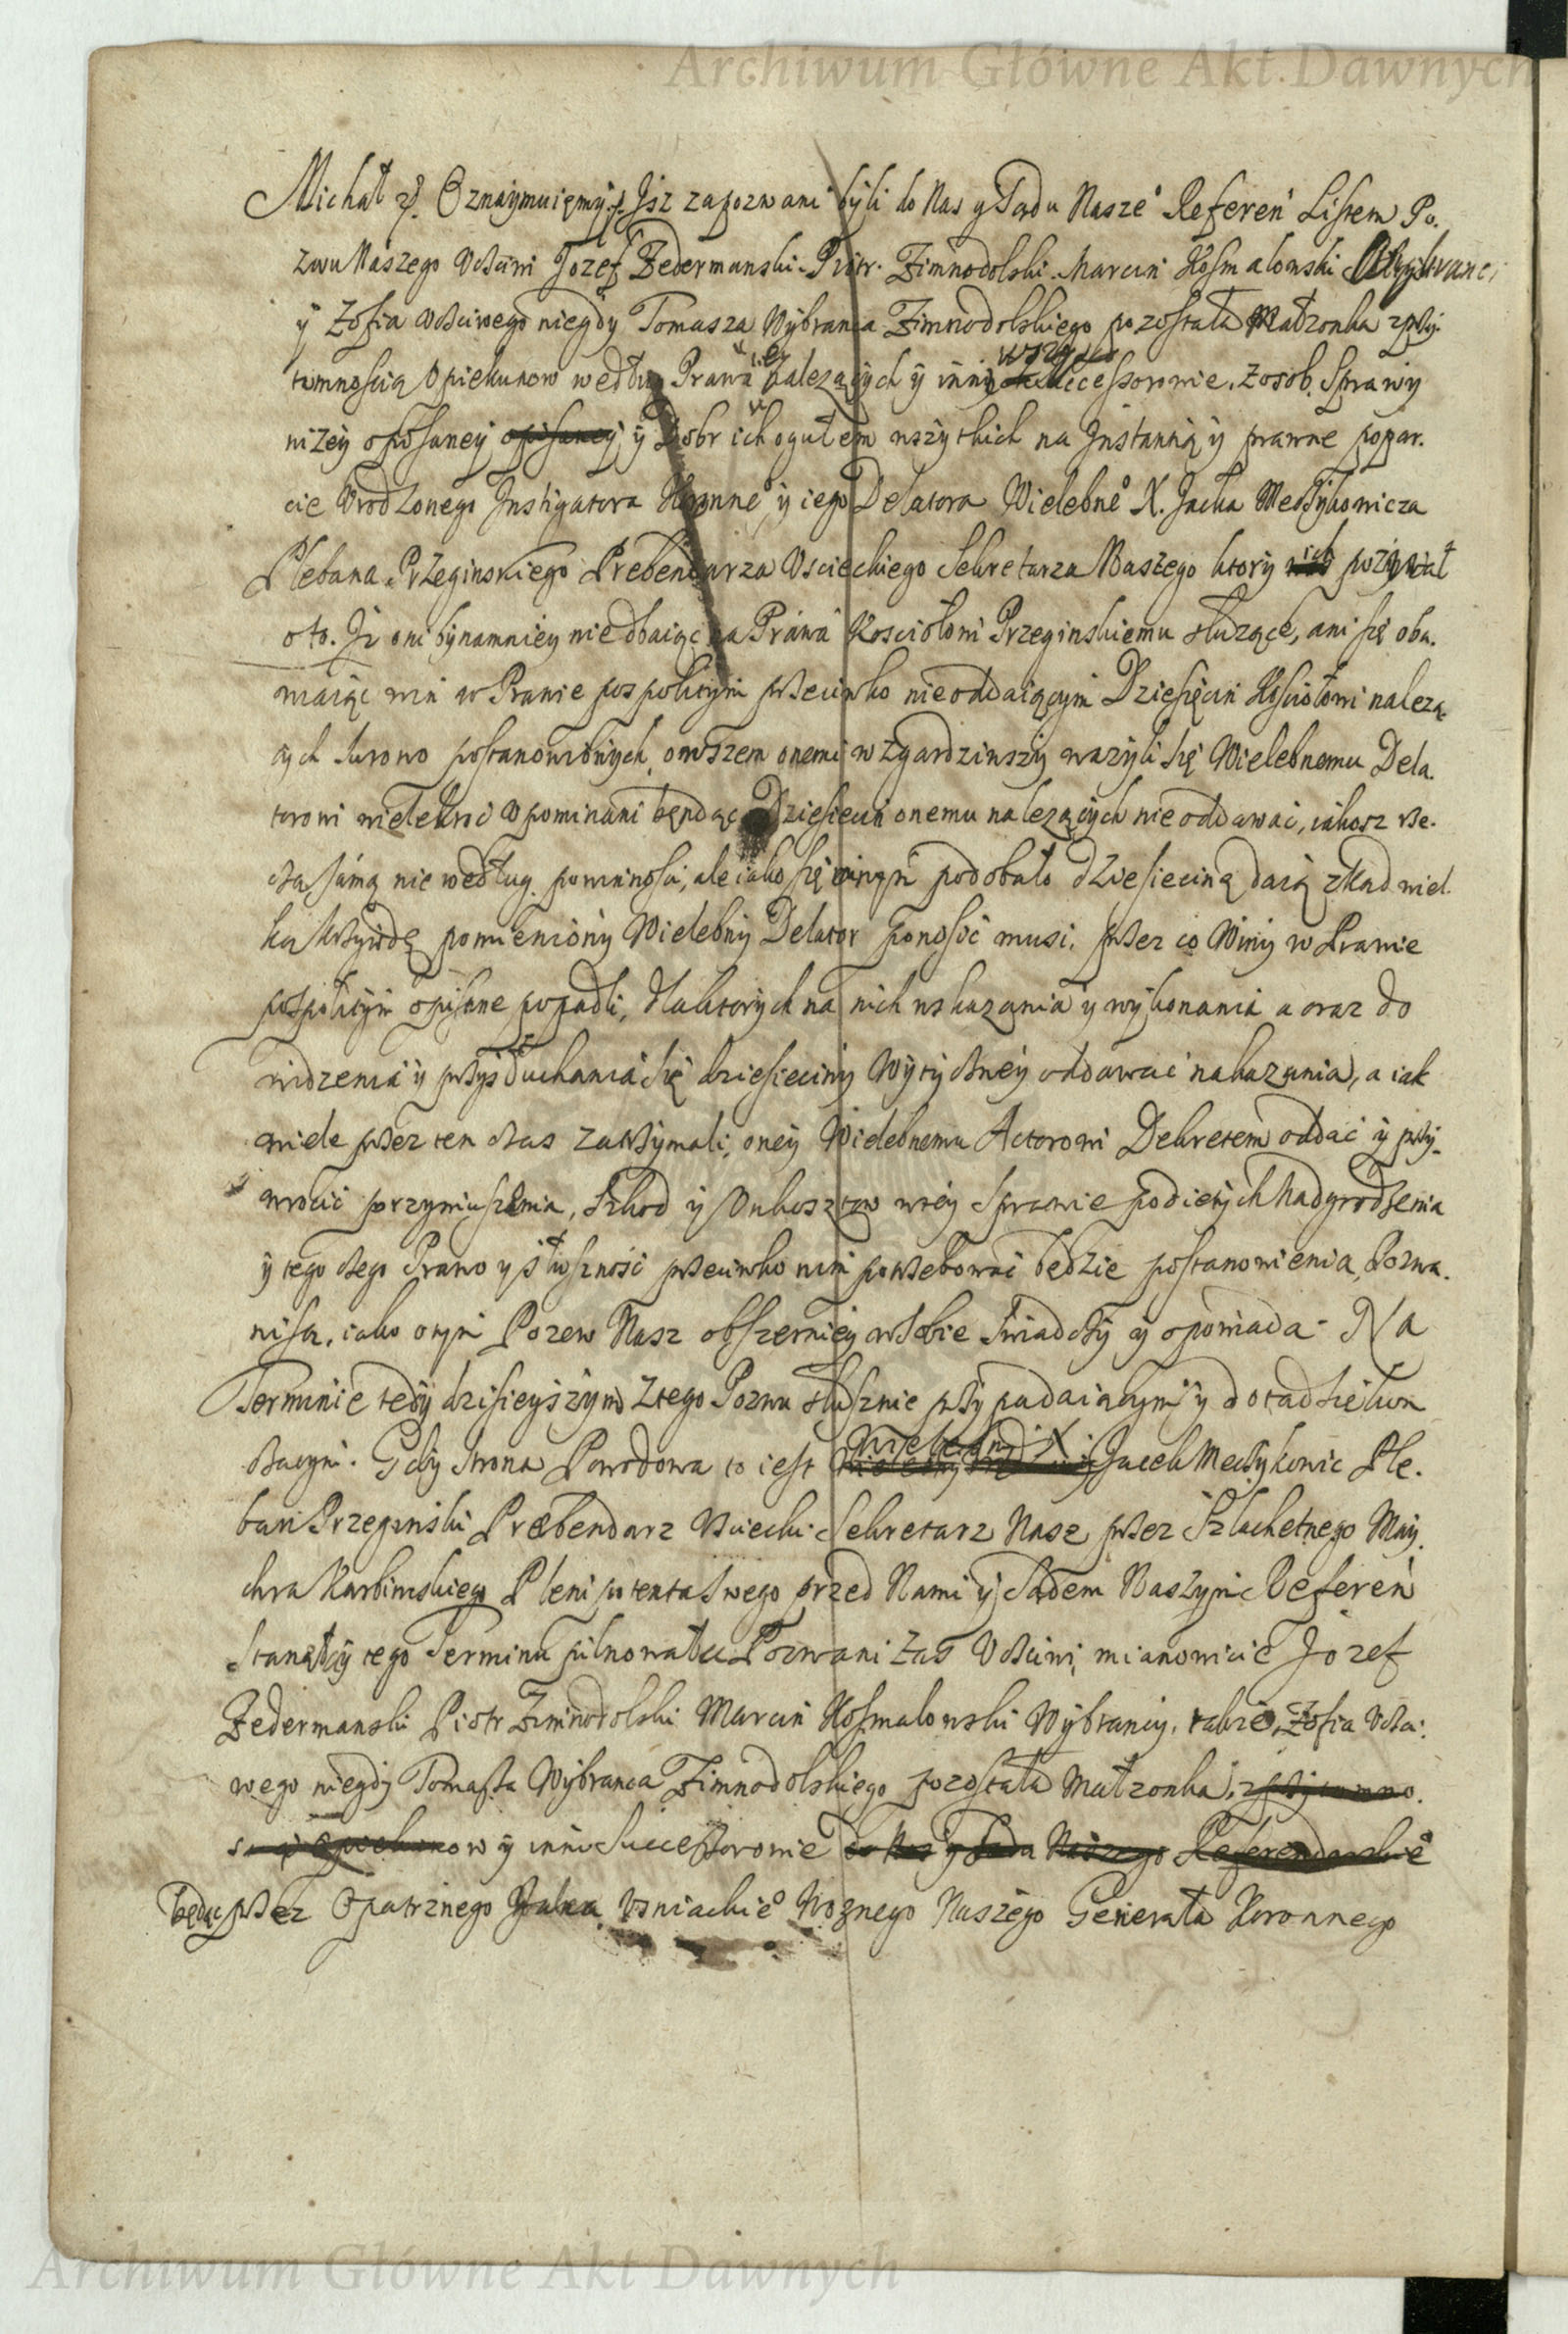 Archiwum Główne Akt Dawnych
Michał etc. Oznaymuięmy etc. Jsz zapozwani byli do Nas y Sądu Nasze° Referen Listem Po.
zwu Naszego Uczciwi Jozef Zedermanski. Piotr. Zimnodolski. Marcin Kosmalowski Wybrancy
ÿ Zofia Uczciwego niegdy Tomasza Wybranca Zimnodolskiego pozostała Małzonka z przy.
tomnoscią Opiekunow według Prawa iey nalezących ÿ inni wszyscy Successorowie. z osob, Sprawÿ
nizeÿ opisaneÿ opisaney, ÿ Dobr ich ogułem wszytkich na Jnstantią ÿ prawne popar.
cie Urodzonego Jnstigatora Koronne° ÿ iego Delatora Wielebne° X. Jacka Meczykowicza
Plebana Przeginskiego Prebendarza Uscieckiego Sekretarza Naszego ktory ich pozywał
oto. Jz oni bynamniey nie dbaiąc na Prawa Kosciołowi Przeginskiemu słuzące, ani się oba.
wiaiąc win w Prawie pospolitym przeciwko nieoddaiącym Dziesięcin Kosciołowi nalezą.
cych surowo postanowionych, owszem onemi wzgardziwszy wazyli się Wielebnemu Dela.
torowi wielekroć upominani będąc Dziesiecin onemu nalezących nie oddawać, iakosz rze.
czą samą nie według powinnosci, ale iako się onym podobało dziesiecinę daią zkad wiel.
ką krzywdę pomieniony Wielebny Delator ponosić musi, przez co Winy w Prawie
pospolitym opisane popadli, dla ktorych na nich wskazania y wykonania a oraz do
widzenia ÿ przysłuchania się dziesieciny Wytyczney oddawać nakazania, a iak
wiele przez ten czas zatrzymali, oneÿ Wielebnemu Actorowi Dekretem oddać ÿ przy.
wrocić przymuszenia, Szkod ÿ Unkosztow w tey Sprawie podiętych Nadgrodzenia
ÿ tego czego Prawo y słusznosć przeciwko nim potrzebować będzie postanowienia, Pozwa.
nisą, iako o tym Pozew Nasz obszerniey w sobie swiadczy y opowiada. Na
Terminie tedy dzisieyszym z tego Pozwu słusznie przypadaiącym y dotad się tocz
szacym. Gdy strona Powodowa to iest Wielebny X. Jacek Meczykowic Ple.
ban Przeginski Præbendarz Usciecki Sekretarz Nasz przez Szlachetnego May.
chra Karbinskiego Plenipotenta swego przed Nami ÿ Sądem Naszym Referen
stanął y tego Terminu pilnował. Pozwani zas Uczciwi, mianowicie Jozef
Zedermanski Piotr Zimnodolski Marcin Kosmalowski Wybrancy, także Zofia Uczci.
wego niegdy Tomasza Wybranca Zimnodolskiego pozostała Małzonka, z przytomno.
scią Opiekunow ÿ inni Successorowie do Nas y Sądu Naszego Referendarskie°
będąc przez Opatrznego Jakuba Usniackie° Woznego Naszego Generała Koronnego
Archiwum Główne Akt Dawnych